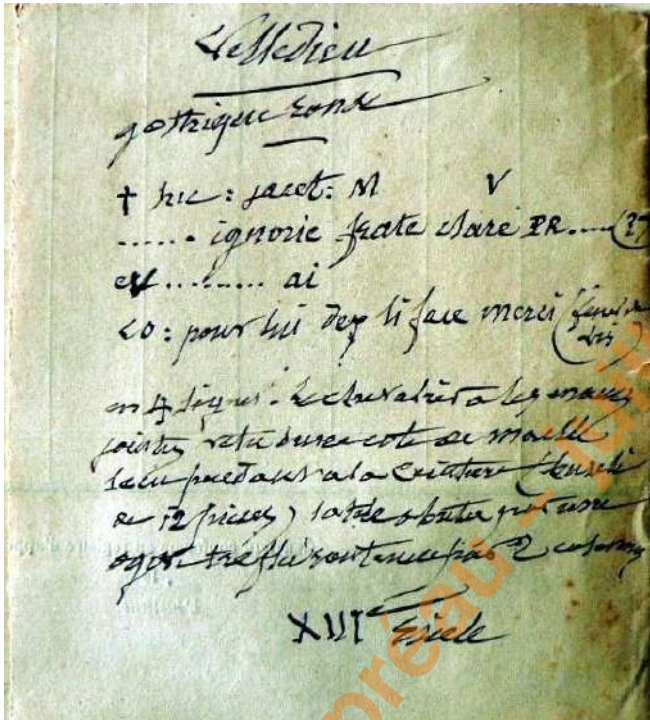 gothique ronde
† hic : jacet : M V
...... ignorie frate clare PR..... (?)
........ ai
co : pour lui dex li face merci
en 4 lignes. Le chevalier a les mains
jointes vetu d'une cote de maille
l'écu pendant a la ceinture (burelé
de 12 pieces) la tete abritée par une
ogive trefflé soutenue par 2 colonnes
XIII siecle
préau - juin